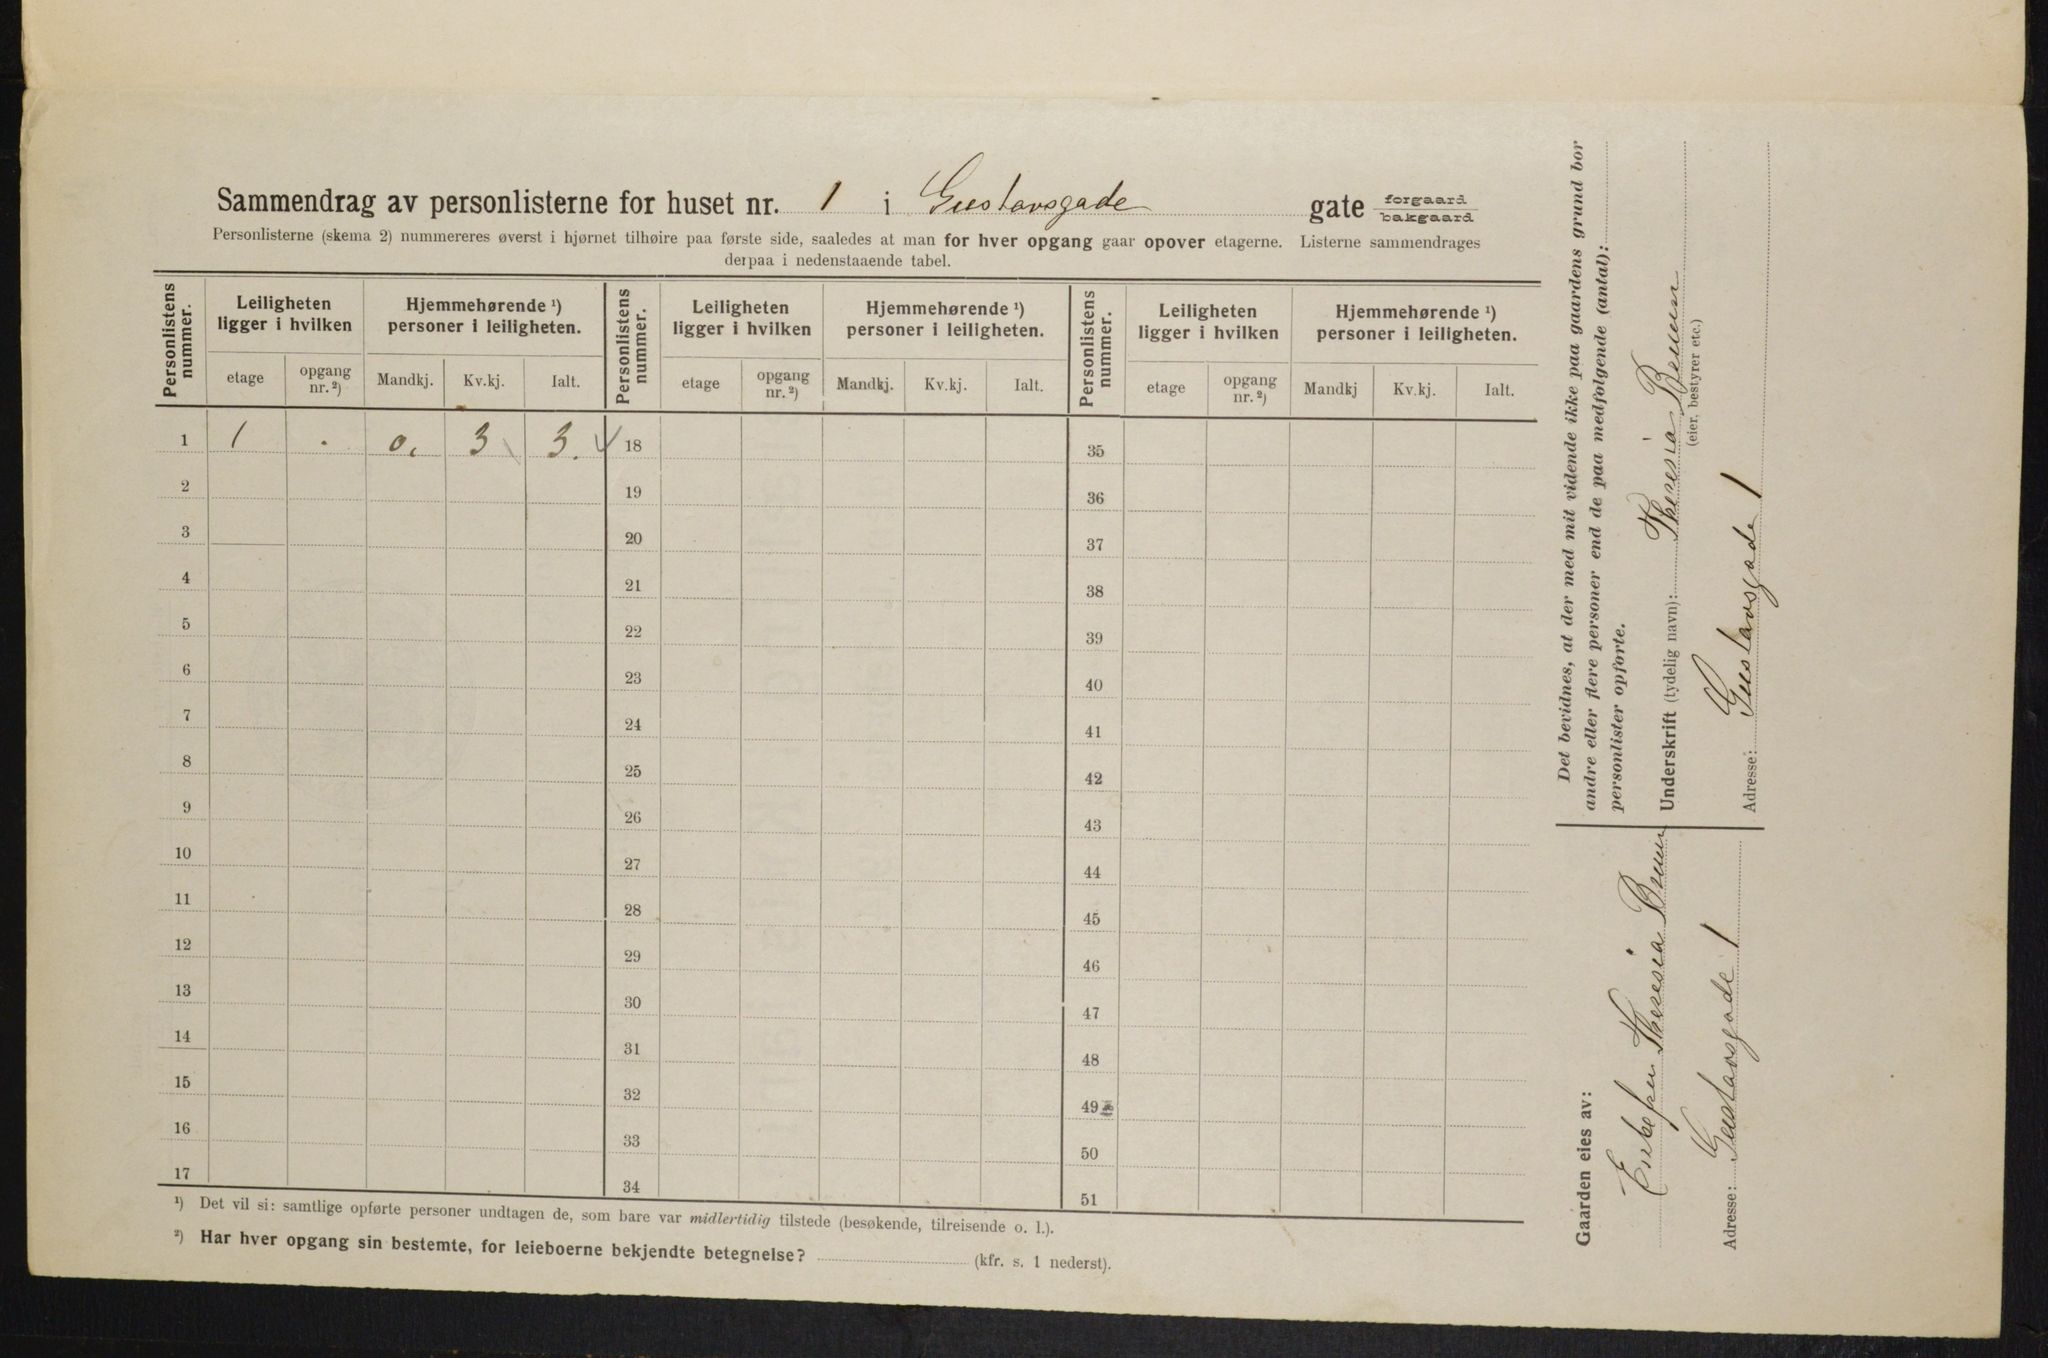 Sammendrag av personlisterne for huset nr. 1 i Gustavsgade gate forgaard bakgaard
Personlisterne (skema 2) nummereres øverst i hjørnet tilhøire paa første side, saaledes at man for hver opgang gaar opover etagerne. Listerne sammendrages
derpaa i nedenstaaende tabel.
Personlistens nummer. Leiligheten ligger i hvilken Hjemmehørende ¹) personer i leiligheten. Personlistens nummer. Leiligheten ligger i hvilken Hjemmehørende ¹) personer i leiligheten. Personlistens nummer. Leiligheten ligger i hvilken Hjemmehørende ¹) personer i leiligheten.
etage opgang nr.²) Mandkj. Kv.kj. Ialt. etage opgang nr.²) Mandkj. Kv.kj. Ialt. etage opgang nr.²) Mandkj Kv.kj. Ialt.
1 1 . 0, 3 3. 18 35
2 19 36
3 20 37
4 21 38
5 22 39
6 23 40
7 24 41
8 25 42
9 26 43
10 27 44
11 28 45
12 29 46
13 30 47
14 31 48
15 32 49
16 33 50
17 34 51
¹) Det vil si: samtlige opførte personer undtagen de, som bare var midlertidig tilstede (besøkende, tilreisende o. l.).
²) Har hver opgang sin bestemte, for leieboerne bekjendte betegnelse? (kfr. s. 1 nederst).
Det bevidnes, at der med mit vidende ikke paa gaardens grund bor
andre eller flere personer end de paa medfølgende (antal):
personlister opførte.
Underskrift (tydelig navn): Theresia Bruun
(eier, bestyrer etc.)
Adresse: Gustavsgade 1
Gaarden eies av:
Enkefru Theresia Bruun
Adresse: Gustavsgade 1